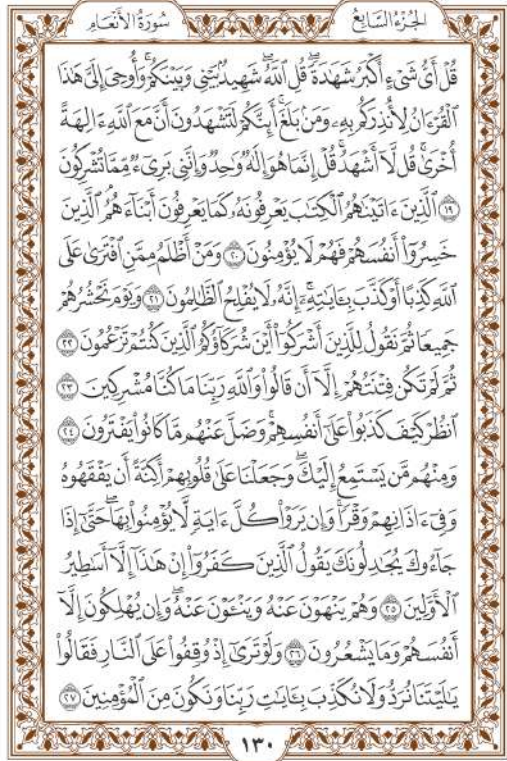 الجُزْءُ السَّابِعُ سُورَةُ الأَنْعَامِ
قُلْ أَىُّ شَىْءٍ أَكْبَرُ شَهَٰدَةًۖ قُلِ ٱللَّهُۖ شَهِيدُۢ بَيْنِى وَبَيْنَكُمْۚ وَأُوحِىَ إِلَىَّ هَٰذَا
ٱلْقُرْءَانُ لِأُنذِرَكُم بِهِۦ وَمَنۢ بَلَغَۚ أَئِنَّكُمْ لَتَشْهَدُونَ أَنَّ مَعَ ٱللَّهِ ءَالِهَةً
أُخْرَىٰۚ قُل لَّآ أَشْهَدُۚ قُلْ إِنَّمَا هُوَ إِلَٰهٌ وَٰحِدٌ وَإِنَّنِى بَرِىٓءٌ مِّمَّا تُشْرِكُونَ
١٩ ٱلَّذِينَ ءَاتَيْنَٰهُمُ ٱلْكِتَٰبَ يَعْرِفُونَهُۥ كَمَا يَعْرِفُونَ أَبْنَآءَهُمُۘ ٱلَّذِينَ
خَسِرُوٓا۟ أَنفُسَهُمْ فَهُمْ لَا يُؤْمِنُونَ ٢٠ وَمَنْ أَظْلَمُ مِمَّنِ ٱفْتَرَىٰ عَلَى
ٱللَّهِ كَذِبًا أَوْ كَذَّبَ بِـَٔايَٰتِهِۦٓۗ إِنَّهُۥ لَا يُفْلِحُ ٱلظَّٰلِمُونَ ٢١ وَيَوْمَ نَحْشُرُهُمْ
جَمِيعًا ثُمَّ نَقُولُ لِلَّذِينَ أَشْرَكُوٓا۟ أَيْنَ شُرَكَآؤُكُمُ ٱلَّذِينَ كُنتُمْ تَزْعُمُونَ ٢٢
ثُمَّ لَمْ تَكُن فِتْنَتُهُمْ إِلَّآ أَن قَالُوا۟ وَٱللَّهِ رَبِّنَا مَا كُنَّا مُشْرِكِينَ ٢٣
ٱنظُرْ كَيْفَ كَذَبُوا۟ عَلَىٰٓ أَنفُسِهِمْۚ وَضَلَّ عَنْهُم مَّا كَانُوا۟ يَفْتَرُونَ ٢٤
وَمِنْهُم مَّن يَسْتَمِعُ إِلَيْكَۖ وَجَعَلْنَا عَلَىٰ قُلُوبِهِمْ أَكِنَّةً أَن يَفْقَهُوهُ
وَفِىٓ ءَاذَانِهِمْ وَقْرًاۚ وَإِن يَرَوْا۟ كُلَّ ءَايَةٍ لَّا يُؤْمِنُوا۟ بِهَاۖ حَتَّىٰٓ إِذَا
جَآءُوكَ يُجَٰدِلُونَكَ يَقُولُ ٱلَّذِينَ كَفَرُوٓا۟ إِنْ هَٰذَآ إِلَّآ أَسَٰطِيرُ
ٱلْأَوَّلِينَ ٢٥ وَهُمْ يَنْهَوْنَ عَنْهُ وَيَنْـَٔوْنَ عَنْهُۖ وَإِن يُهْلِكُونَ إِلَّآ
أَنفُسَهُمْ وَمَا يَشْعُرُونَ ٢٦ وَلَوْ تَرَىٰٓ إِذْ وُقِفُوا۟ عَلَى ٱلنَّارِ فَقَالُوا۟
يَٰلَيْتَنَا نُرَدُّ وَلَا نُكَذِّبَ بِـَٔايَٰتِ رَبِّنَا وَنَكُونَ مِنَ ٱلْمُؤْمِنِينَ ٢٧
١٣٠